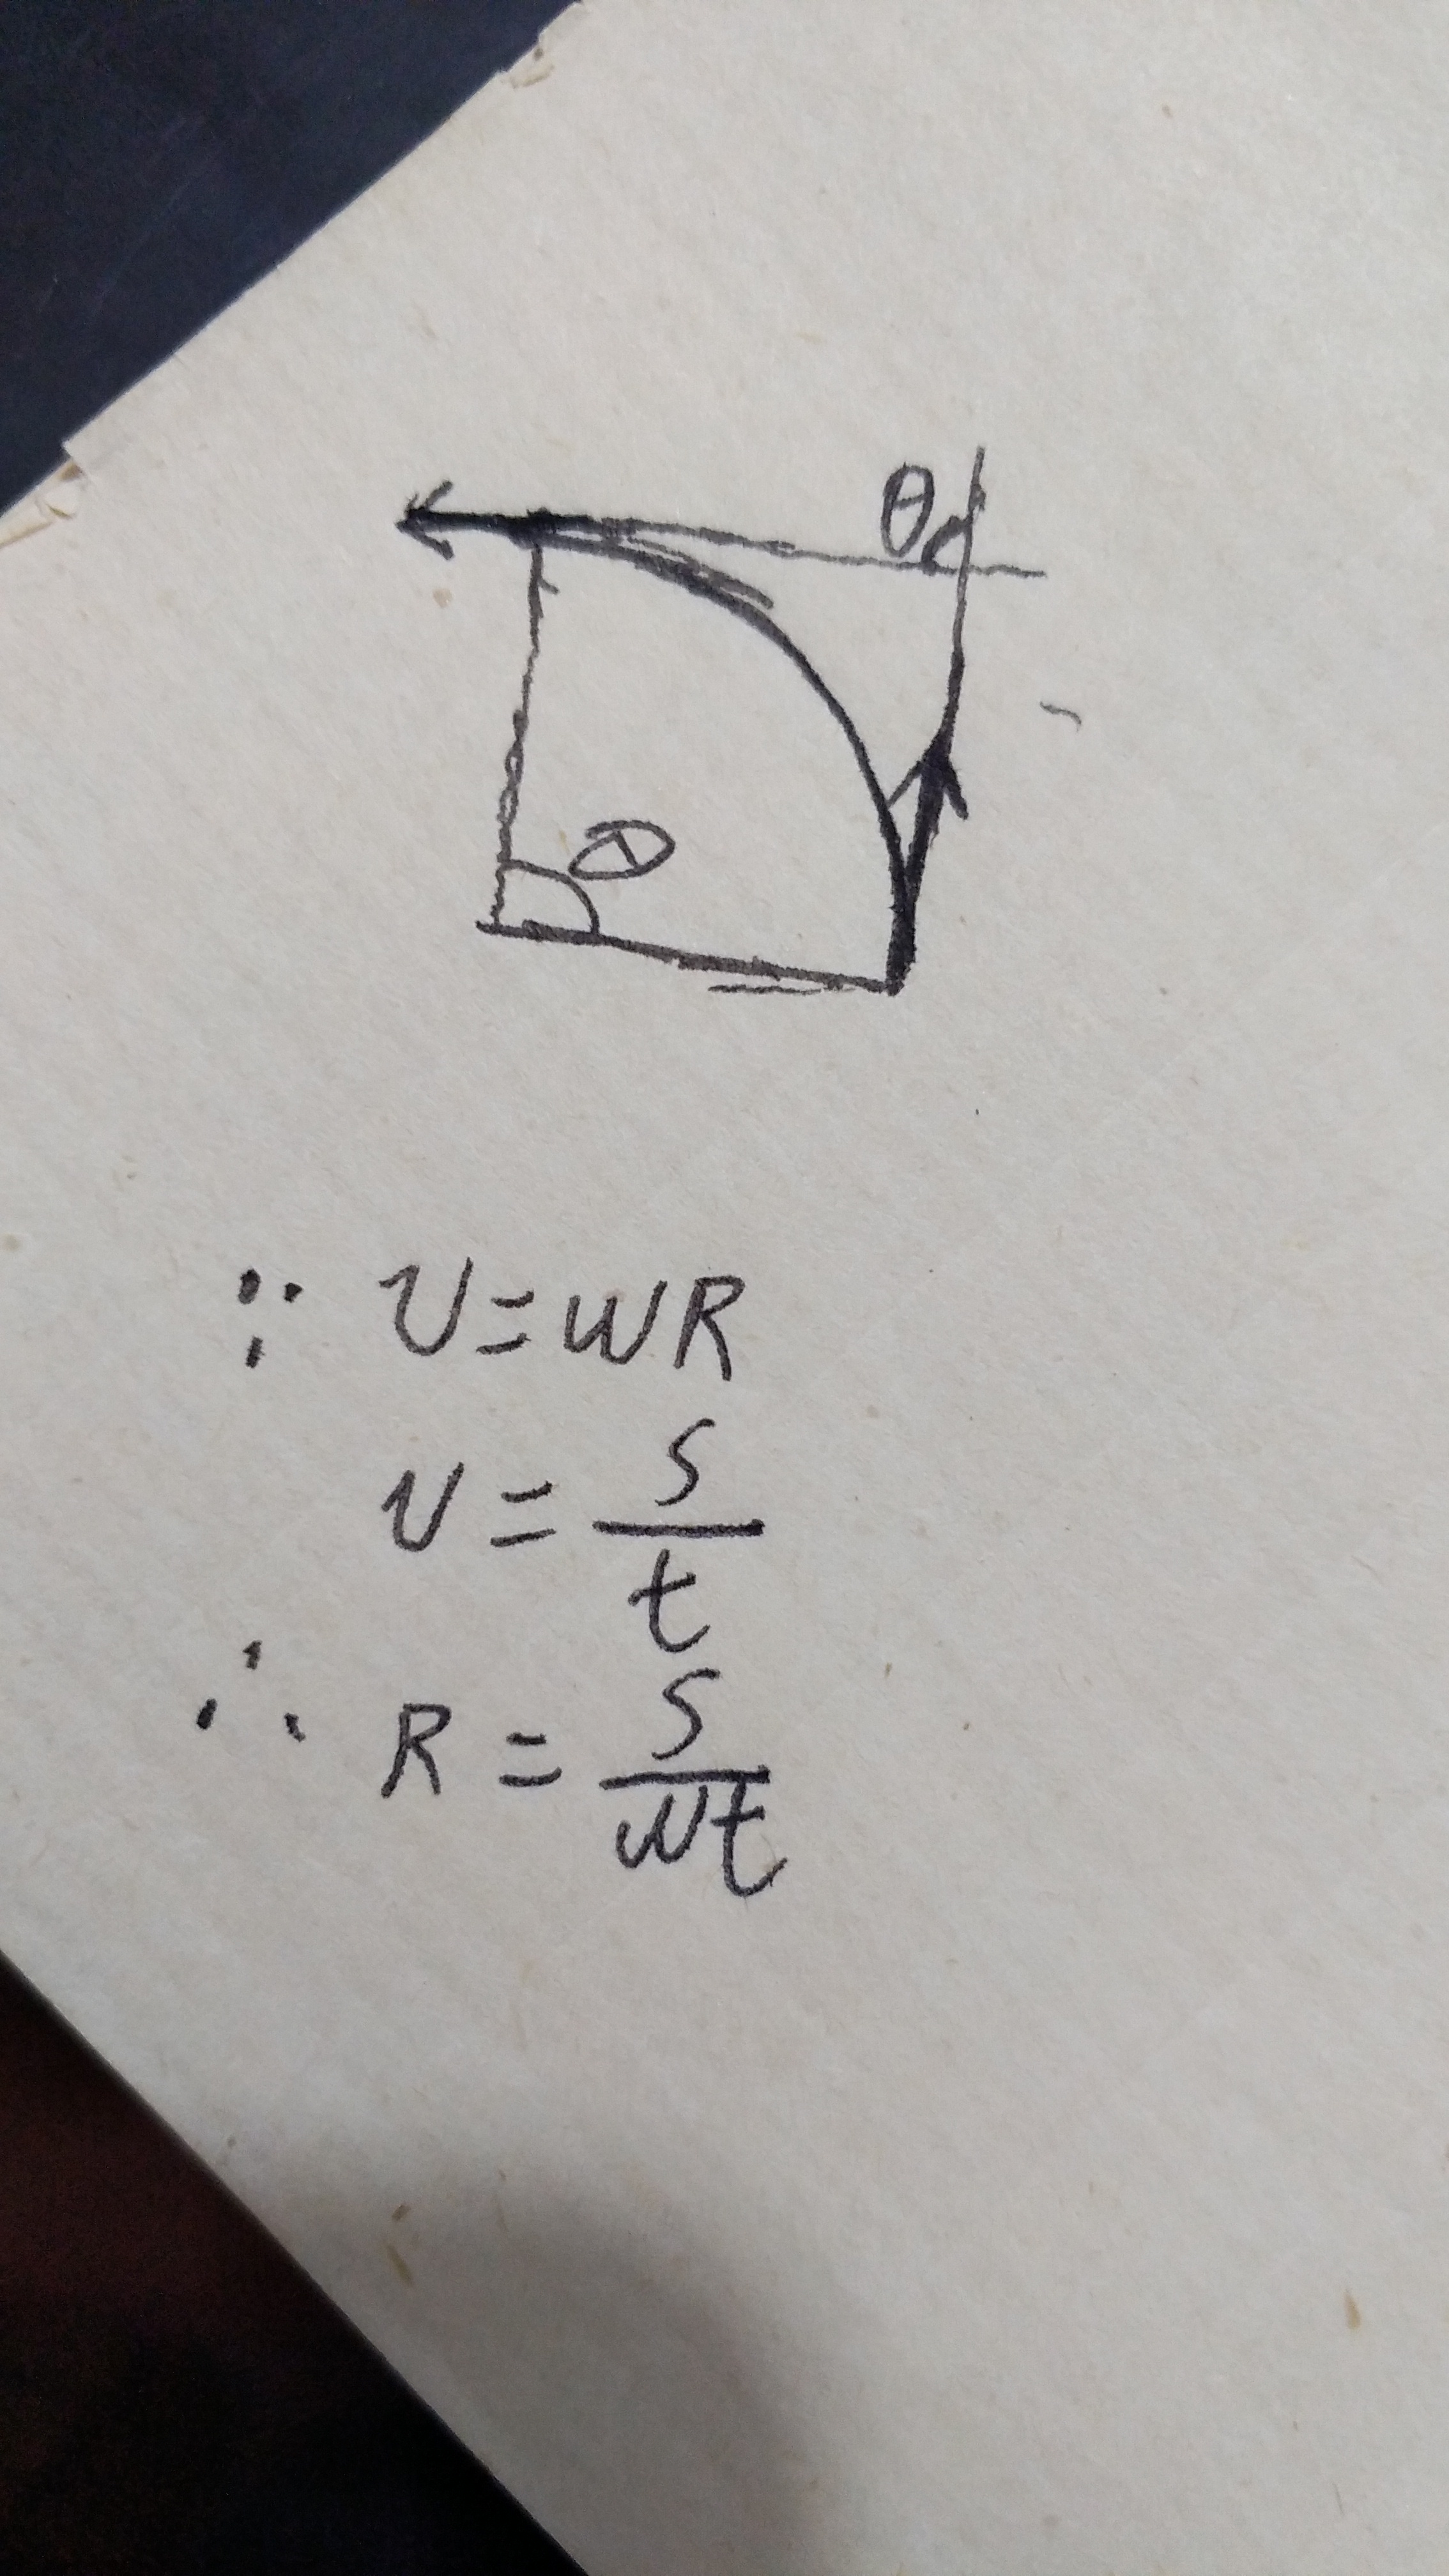 θ
θ
∵ v=wR
v=s/t
∴ R=s/wt